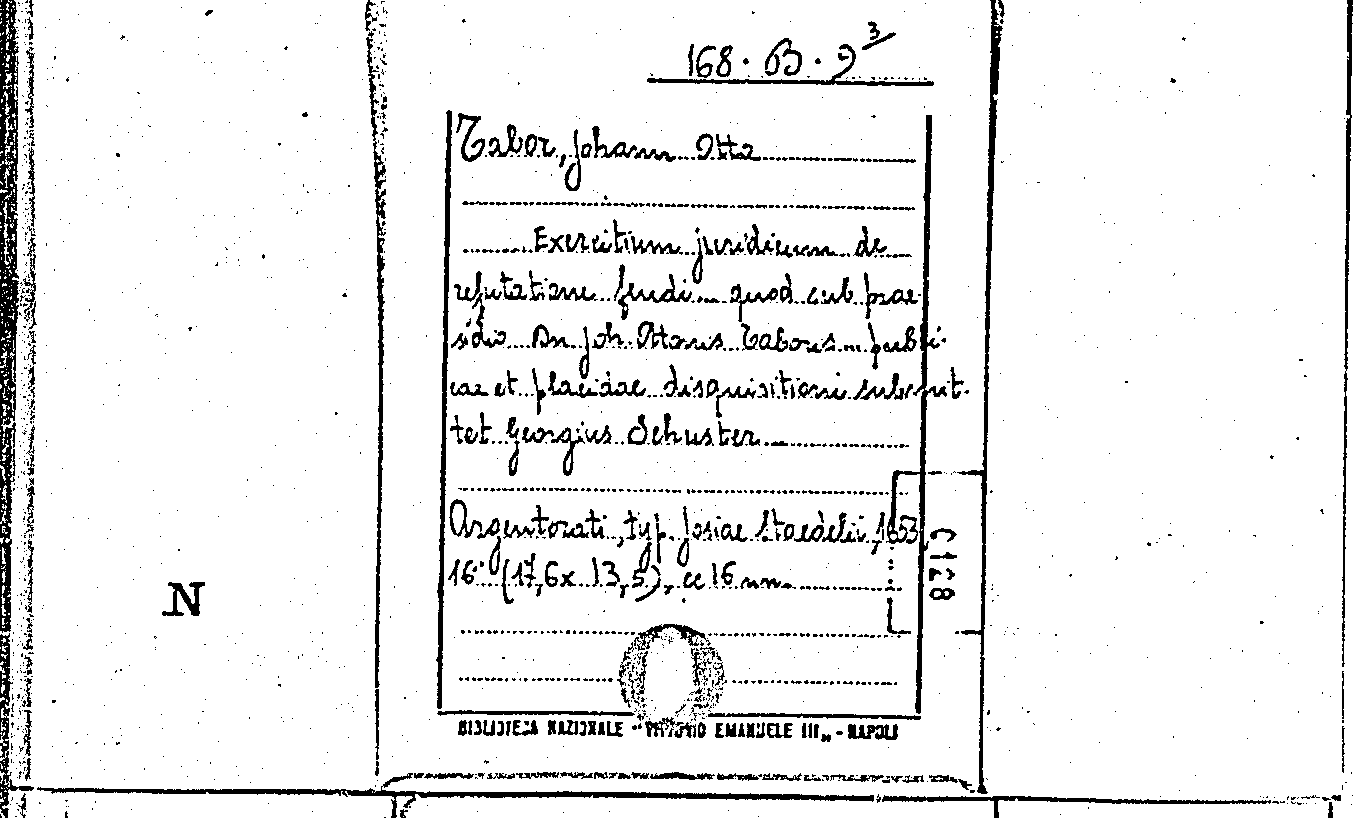 168. B. 9³
Tabor, Johann Otto
Exercitium juridicum de
refutatione feudi... quod sub prae-
sidio Dn Joh. Ottonis Taboris... publi-
cae et placidae disquisitioni submit-
tet Georgius Schuster...
Argentorati, typ. Josiae Staedelii, 1653,
16° (17,6x 13,5), cc 16 nn.
N
BIBLIOTECA NAZIONALE "VITTORIO EMANUELE III„ - NAPOLI